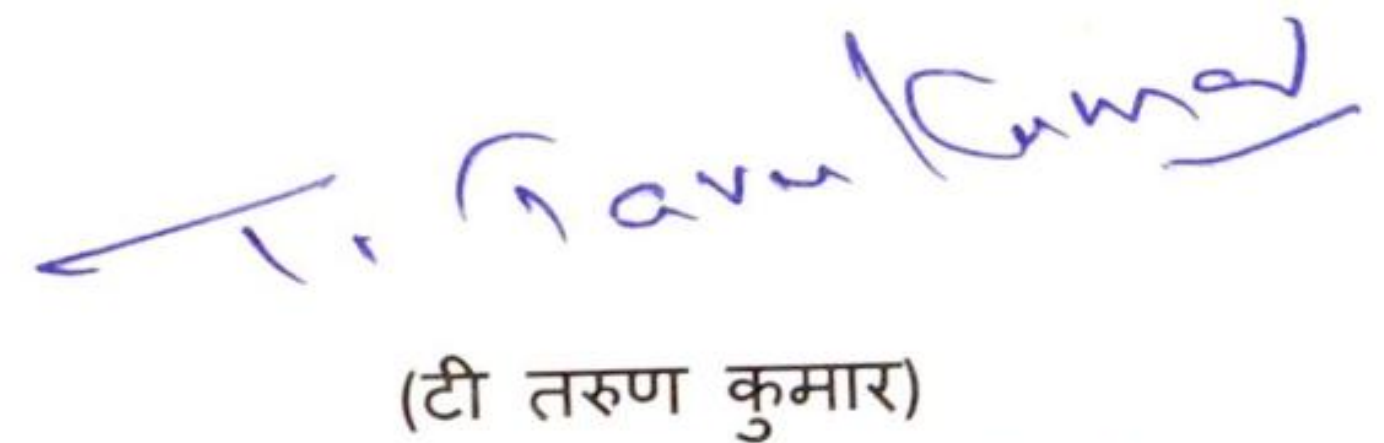 T. Tarun Kumar
(टी तरुण कुमार)